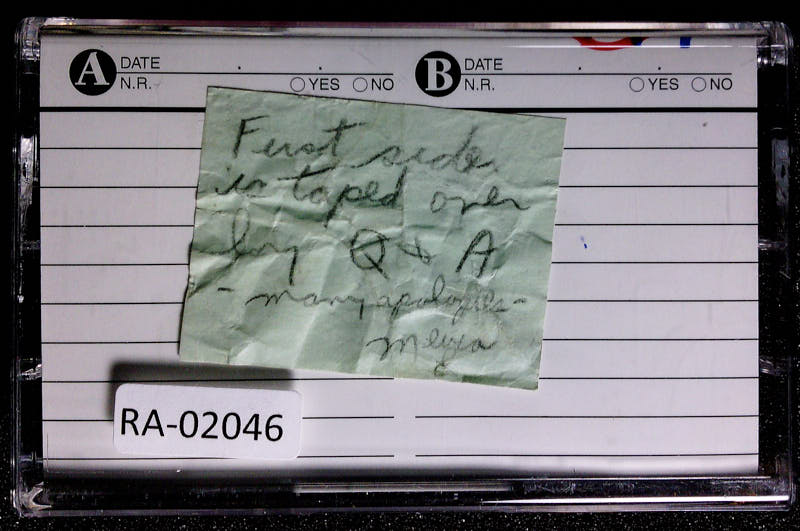 A DATE
N.R. YES NO
B DATE
N.R. YES NO
First side
is taped over
by Q & A
- many apologies -
RA-02046